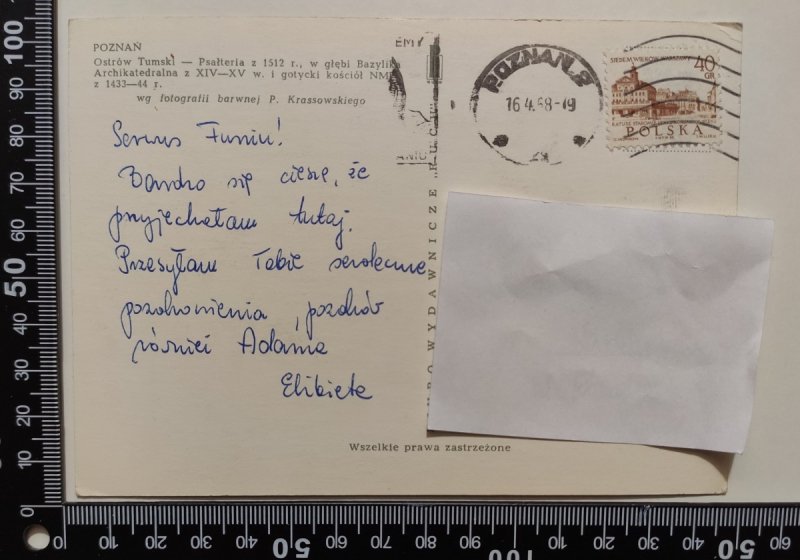 POZNAŃ
Ostrów Tumski — Psałteria z 1512 r., w głębi Bazylika
Archikatedralna z XIV—XV w. i gotycki kościół NMP
z 1433—44 r.
wg fotografii barwnej P. Krassowskiego
Serwus Funiu!
Bardzo się cieszę, że
przyjechałam tutaj.
Przesyłam Tobie serdeczne
pozdrowienia, pozdrów
również Adama
Elżbieta
Wszelkie prawa zastrzeżone
BIURO WYDAWNICZE „RUCH”
POZNAŃ 2
16.4.68-19
SIEDEM WIEKÓW WARSZAWY
40
GR
POLSKA
100
90
80
70
60
50
40
30
20
10
0
0
10
20
30
40
50
60
70
80
90
100
10
20
30
40
50
60